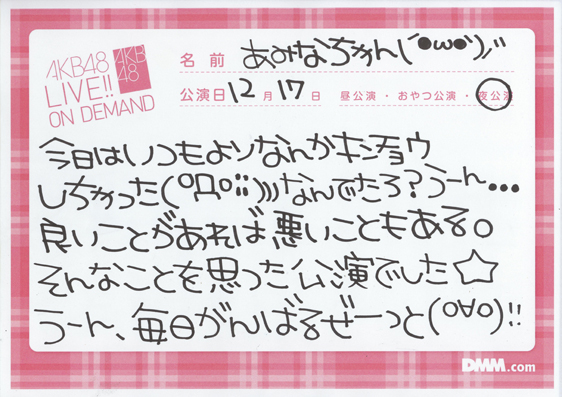 AKB48
LIVE!!
ON DEMAND
AKB
48
名前 あみなちゃん(´●ω●`)〃
公演日 12月 17日 昼公演・おやつ公演・夜公演
今日はいつもよりなんかキンチョウ
しちゃった(ºДº;;)))なんでだろ?うーん...
良いことがあれば悪いこともある。
そんなことを思った公演でした☆
うーん、毎日がんばるぜーっと(º∀º)!!
DMM.com